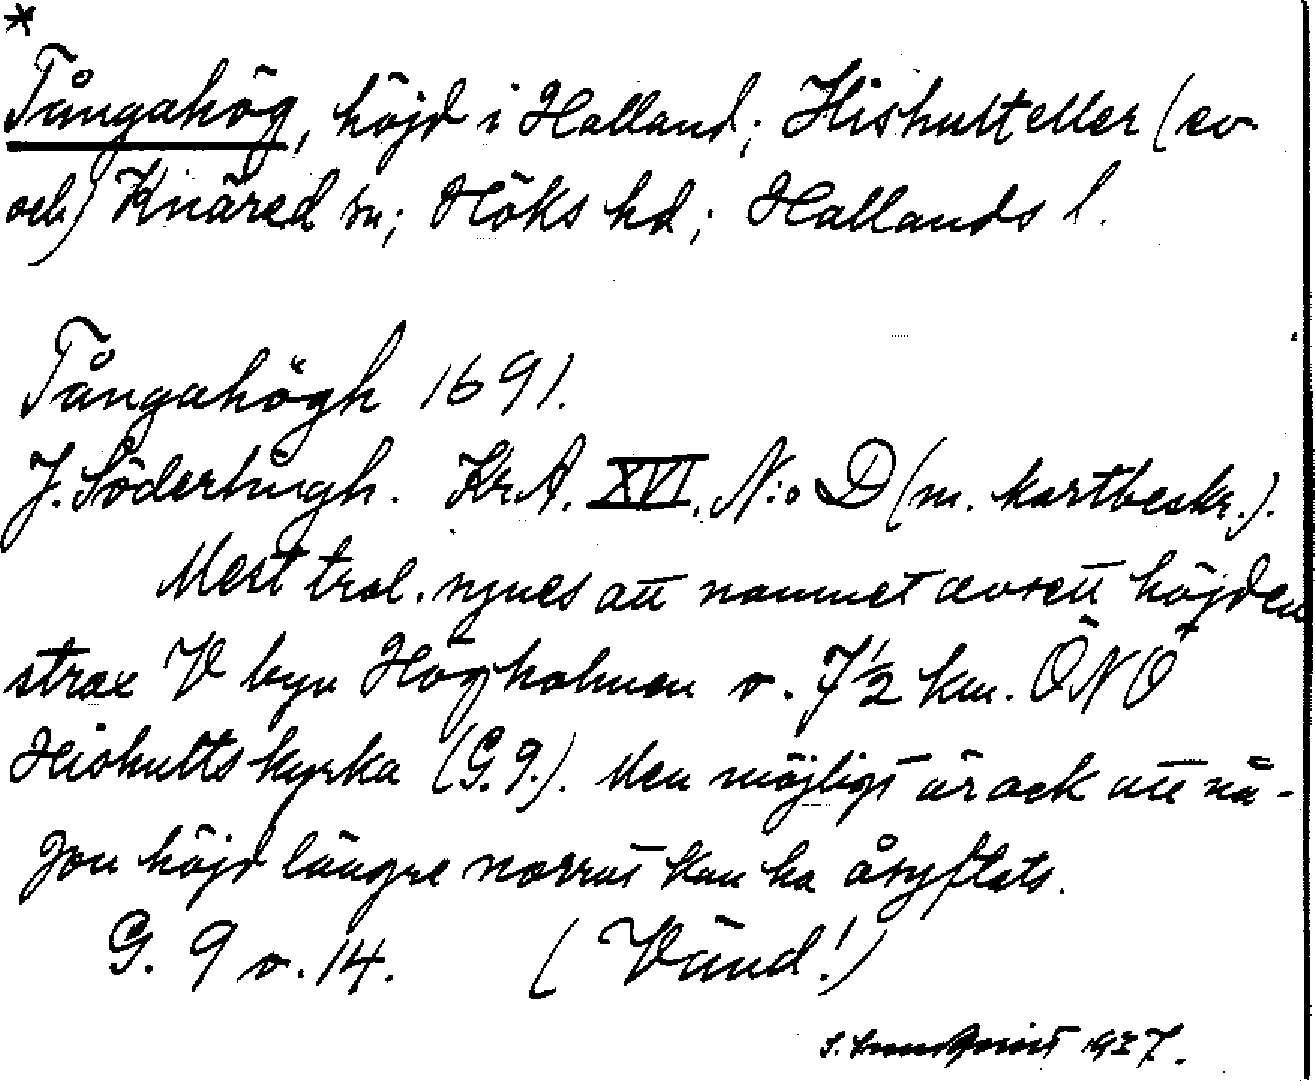 *
Tångahög, höjd i Halland; Hishult eller (ev.
och) Knäred sn; Höks hd; Hallands l.
Tångahögh 1691.
J. Söderhügh. Kr.A. XVI, N:o D (m. kartbeskr.).
Mest trol. synes att namnet avsett höjden
strax V byn Högholmen o. 7 1/2 km. ÖNÖ
Hishults kyrka (G.9.). Men möjligt är ock att nå-
gon höjd längre norrut kan ha åsyftats.
G. 9 o. 14. (Vänd!)
1937.